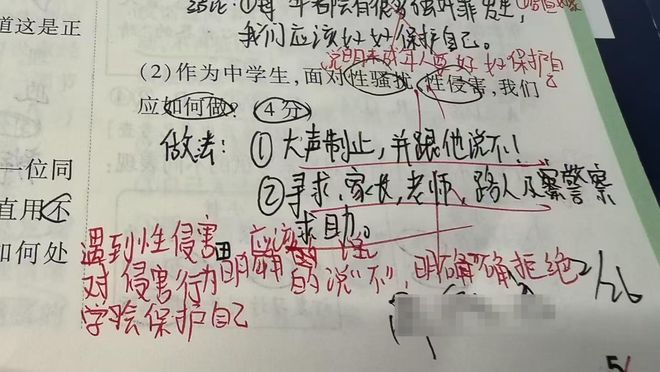 我们应该好好保护自己。
说明未成年人要好好保护自己
道这是正
(2)作为中学生,面对性骚扰、性侵害,我们
应如何做? (4分)
做法:①大声制止,并跟他说不!
一位同
②寻求、家长,老师,路人及警察
直用不
求助。
如何处
遇到性侵害 应该
对侵害行为明确的说"不",明确拒绝
学会保护自己